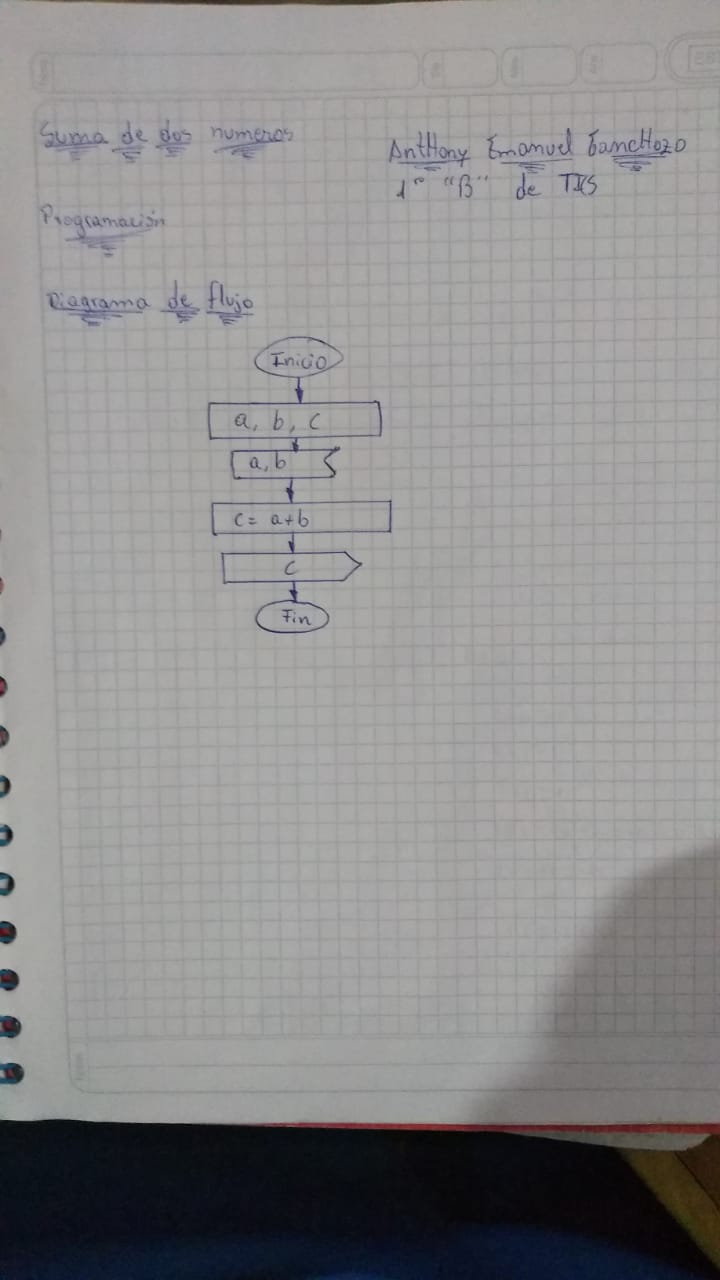 Suma de dos numeros
Anthony Emanuel Ganchozo
1ro "B" de TICS
Programación
Diagrama de flujo
Inicio
a, b, c
a, b
c = a+b
c
Fin